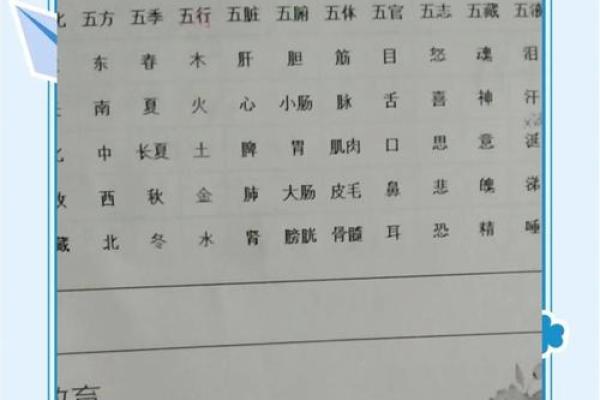 化 五方 五季 五行 五脏 五腑 五体 五官 五志 五藏 五液
东 春 木 肝 胆 筋 目 怒 魂 泪
南 夏 火 心 小肠 脉 舌 喜 神 汗
化 中 长夏 土 脾 胃 肌肉 口 思 意 涎
收 西 秋 金 肺 大肠 皮毛 鼻 悲 魄 涕
藏 北 冬 水 肾 膀胱 骨髓 耳 恐 精 唾
教育